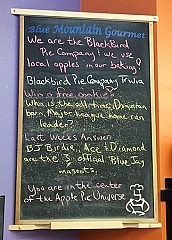 Blue Mountain Gourmet
We are the Blackbird
Pie Company! we use
local apples in our baking!
Blackbird Pie Company Trivia
Win a free cookie!
Who is the all-time, Dominican
born Major league home run
leader?
Last Weeks Answer
BJ Birdie, Ace & Diamond
are the 3 official Blue Jay
mascots.
You are in the center
of the Apple Pie Universe